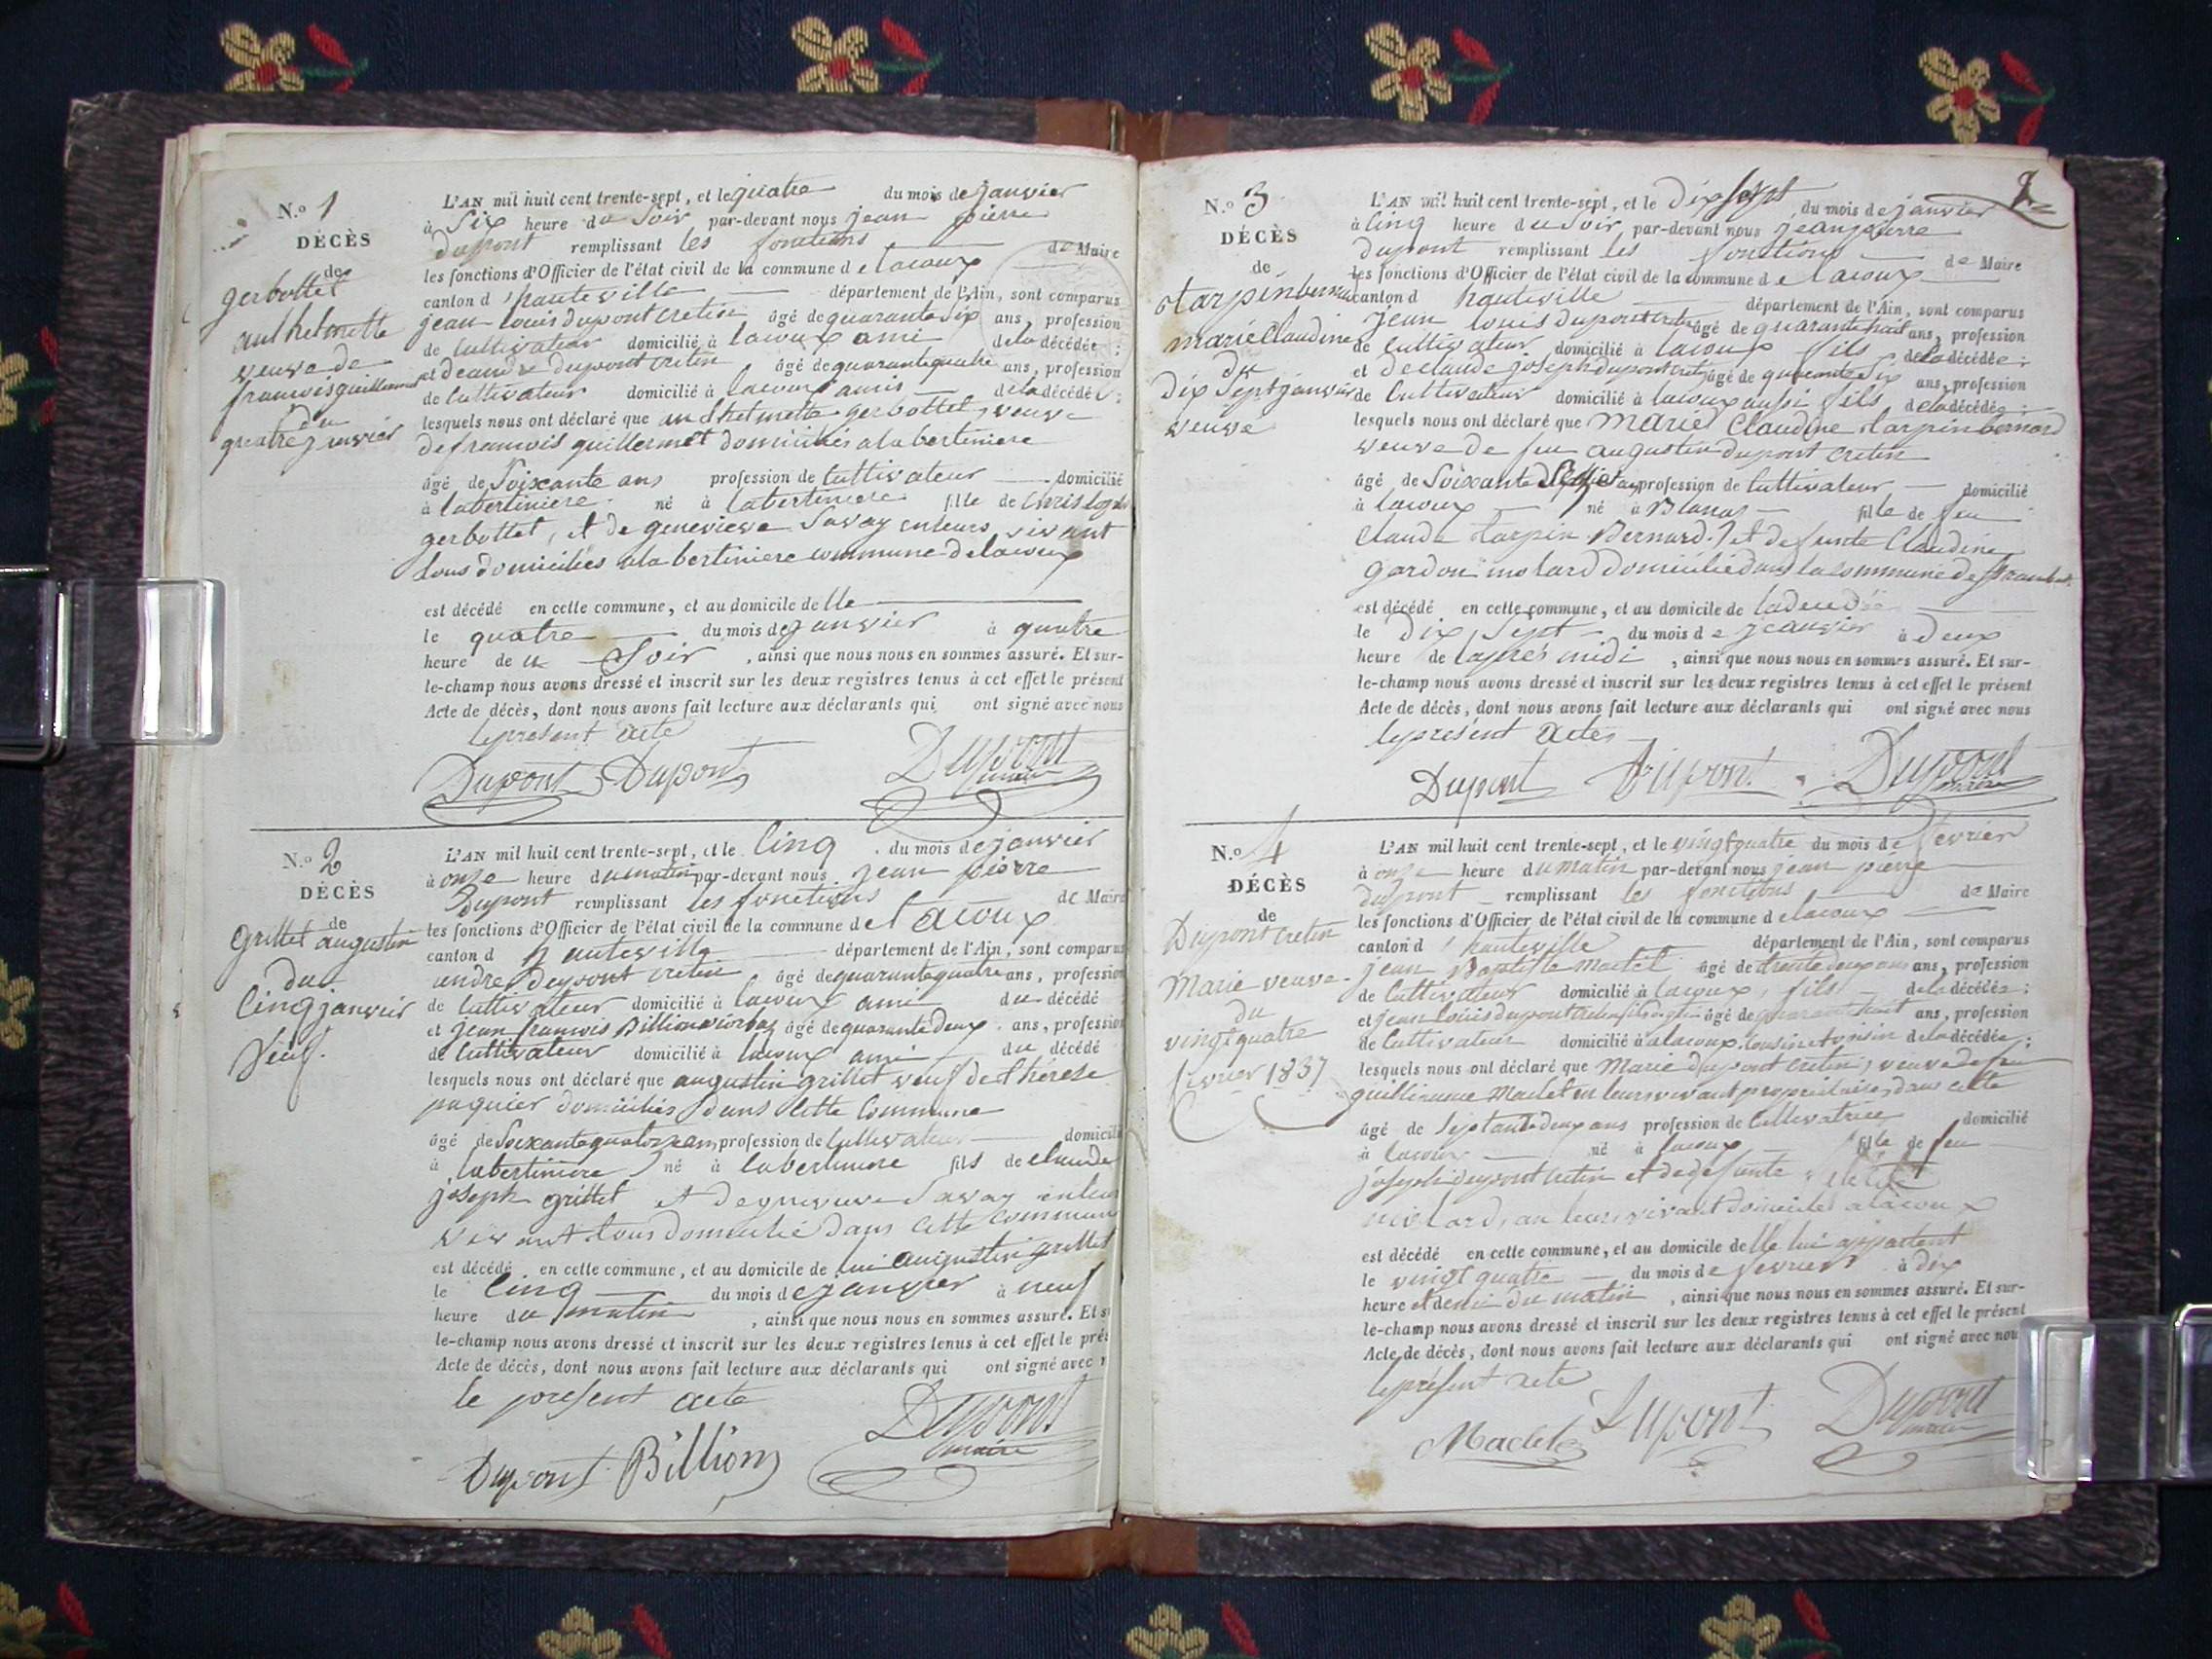 N.o 1
DÉCÈS
de
gerbottet
anthelmette
veuve de
francois guillermet
du
quatre janvier
L'AN mil huit cent trente-sept, et le quatre du mois de janvier
à Six heure du Soir par-devant nous jean pierre
dupont remplissant les fonctions de Maire
les fonctions d'Officier de l'état civil de la commune de lacoux
canton d'hauteville département de l'Ain, sont comparus
jean louis dupont cretin âgé de quarante six ans, profession
de Cultivateur domicilié à lacoux ami de la décédée;
et de andré dupont cretin âgé de quarante quatre ans, profession
de Cultivateur domicilié à lacoux amis de la décédée;
lesquels nous ont déclaré que anthelmette gerbottet, veuve
de francois guillermet domiciliés a la bertiniere
âgé de Soixante ans profession de Cultivateur domicilié
à labertiniere né à labertiniere fille de
gerbottet, et de genevieve Savay enleurs vivant
tous domiciliés ala bertiniere commune de lacoux
est décédé en cette commune, et au domicile de lle
le quatre du mois de janvier à quatre
heure de u Soir, ainsi que nous nous en sommes assuré. Et sur-
le-champ nous avons dressé et inscrit sur les deux registres tenus à cet effet le présent
Acte de décès, dont nous avons fait lecture aux déclarants qui ont signé avec nous
le present acte
Dupont Dupont Dupont maire
N.o 2
DÉCÈS
de
Grillet augustin
du
Cinq janvier
Veuf.
L'AN mil huit cent trente-sept, et le Cinq du mois de janvier
à onze heure du matin par-devant nous jean pierre
Dupont remplissant les fonctions de Maire
les fonctions d'Officier de l'état civil de la commune de Lacoux
canton d hauteville département de l'Ain, sont comparus
andre dupont cretin âgé de quarante quatre ans, profession
de Cultivateur domicilié à lacoux ami du décédé
et jean francois Billion âgé de quarante deux ans, profession
de Cultivateur domicilié à lacoux ami du décédé
lesquels nous ont déclaré que augustin grillet veuf de therese
paquier domiciliés dans cette Commune
âgé de Soixante quatorze ans, profession de Cultivateur domicilié
à labertiniere né à labertiniere fils de claude
joseph grillet et de Savay enleur
vivant tous domicilié dans cette Commun
est décédé en cette commune, et au domicile de lui augustin grillet
le Cinq du mois de janvier à neuf
heure du matin, ainsi que nous nous en sommes assuré. Et s
le-champ nous avons dressé et inscrit sur les deux registres tenus à cet effet le prés
Acte de décès, dont nous avons fait lecture aux déclarants qui ont signé avec n
le present acte
Dupont Billion Dupont maire
2
N.o 3
DÉCÈS
de
tarpin bernard
marie Claudine
du
dix Sept janvier
veuve
L'AN mil huit cent trente-sept, et le Dix Sept du mois de janvier
à Cinq heure du Soir, par-devant nous jean pierre
dupont remplissant les fonctions de Maire
les fonctions d'Officier de l'état civil de la commune de lacoux
canton d hauteville département de l'Ain, sont comparus
jean louis dupont cretin âgé de quarante huit ans, profession
de Cultivateur domicilié à lacoux fils de la décédée;
et de claude joseph dupont cretin âgé de quarante Six ans, profession
de Cultivateur domicilié à lacoux aussi fils de la décédée;
lesquels nous ont déclaré que Marie Claudine tarpin bernard
veuve de feu augustin dupont cretin
âgé de Soixante profession de Cultivateur domicilié
à lacoux né à Blanas fille de feu
Claude tarpin Bernard et defunte Claudine
gardon molard domicilié dans la commune de
est décédé en cette commune, et au domicile de ladécédée
le Dix Sept du mois de jeanvier à deux
heure de l'après midi, ainsi que nous nous en sommes assuré. Et sur-
le-champ nous avons dressé et inscrit sur les deux registres tenus à cet effet le présent
Acte de décès, dont nous avons fait lecture aux déclarants qui ont signé avec nous
le présent acte
Dupont Dupont Dupont maire
N.o 4
DÉCÈS
de
Dupont cretin
Marie veuve
du
vingt quatre
fevrier 1837
L'AN mil huit cent trente-sept, et le vingt quatre du mois de fevrier
à onze heure du matin par-devant nous jean pierre
dupont remplissant les fonctions de Maire
les fonctions d'Officier de l'état civil de la commune de lacoux
canton d'hauteville département de l'Ain, sont comparus
jean Baptiste maclet âgé de trente deux ans ans, profession
de Cultivateur domicilié à lacoux, fils de la décédée;
et jean louis dupont cretin âgé de quarante huit ans, profession
de Cultivateur domicilié à alacoux cousin et voisin de la décédée;
lesquels nous ont déclaré que Marie dupont cretin, veuve de feu
guillieaume Maclet en leurs vivant propriétaires dans cette
âgé de Septante deux ans profession de Cultivatrice domicilié
à lacoux né à lacoux fille de feu
joseph dupont cretin et de defunte
molard, en leurs vivant domiciliés alacoux
est décédé en cette commune, et au domicile de lle lui appartent
le vingt quatre du mois de fevrier à dix
heure et demi du matin, ainsi que nous nous en sommes assuré. Et sur-
le-champ nous avons dressé et inscrit sur les deux registres tenus à cet effet le présent
Acte de décès, dont nous avons fait lecture aux déclarants qui ont signé avec nou
le présent acte
Maclet Dupont Dupont maire